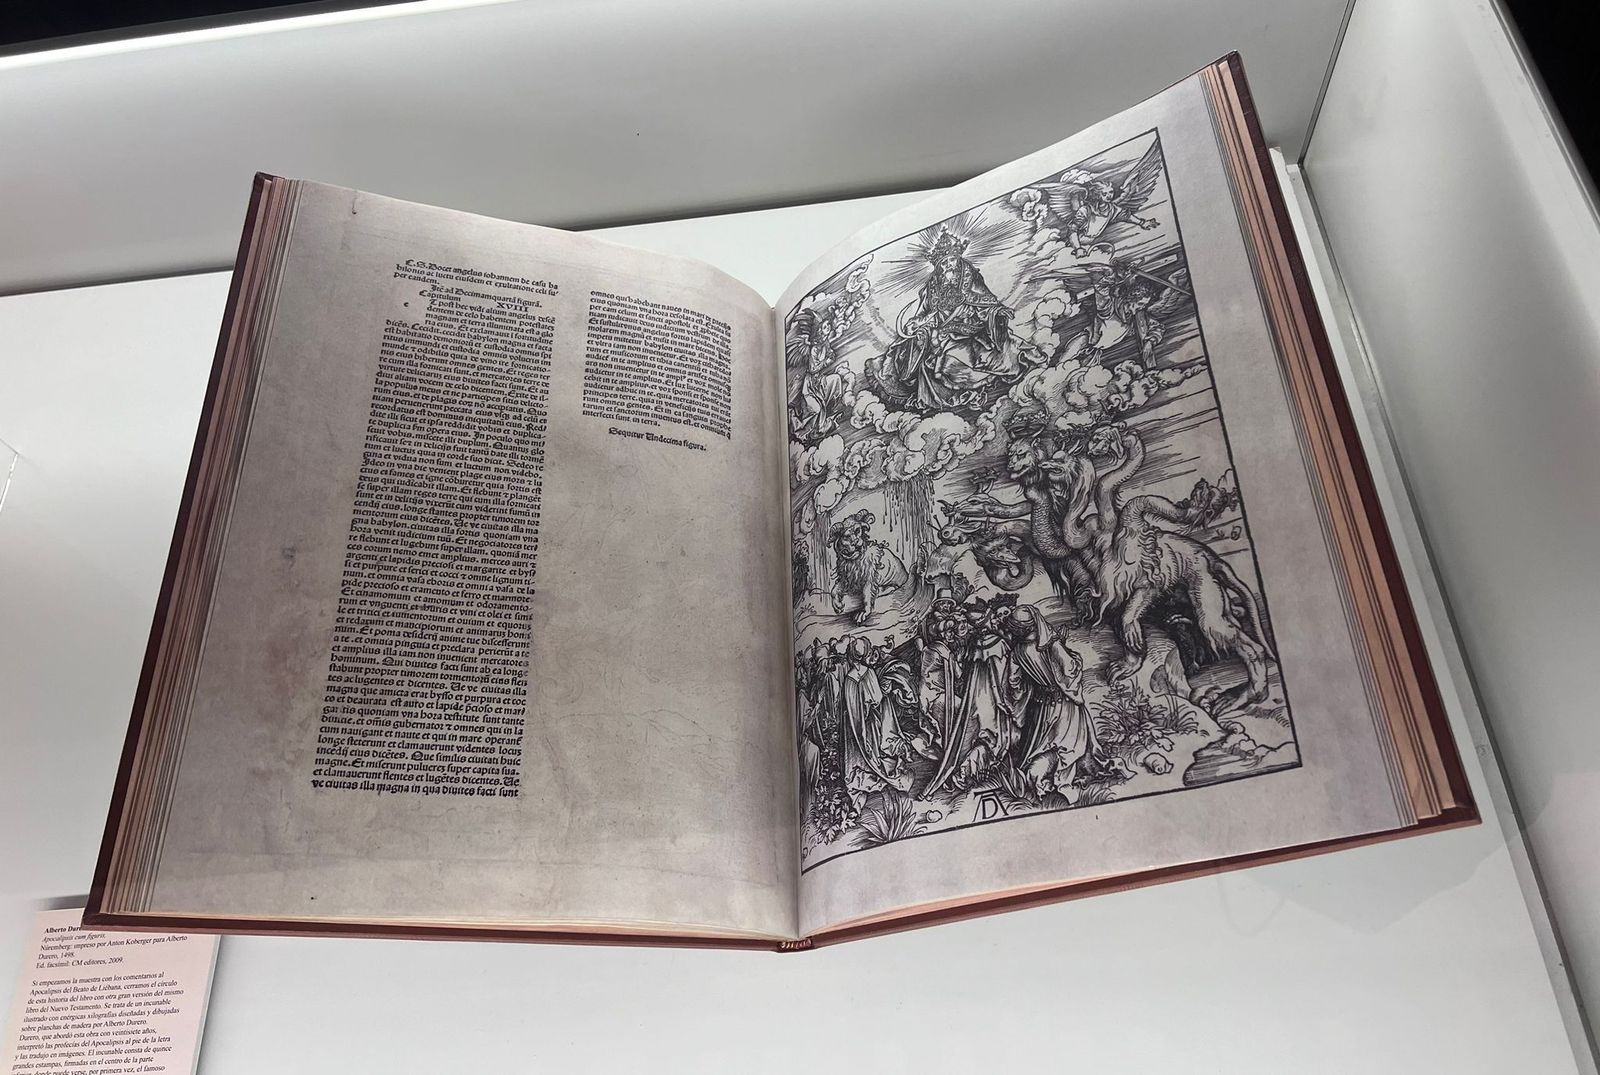 C. S. Docet angelus iobannem de casu ba
bilonis ac luctu eiusdem et exultatione celi su
per eandem.
Itē ad Decimamquartā figurā.
Capitulum XVIII
e T post hec vidi alium angelus descē
dentem de celo habentem potestatē
magnam et terra illuminata est a glo
ria eius. Et exclamauit fortitudine
dicēs. Cecidit. cecidit babylon magna et facta
est habitatio demoniorū et custodia omnis spi
ritus immundi et custodia omnis volucris im
munde ⁊ odibilis quia de vino fornicatio
nis eius biberunt omnes gentes. Et reges ter
re cum illa fornicati sunt. et mercatores terre de
virtute deliciarum eius diuites facti sunt. Et au
diui aliam vocem de celo dicentem. Exite de il
la populus meus et ne participes sitis delicto
rum eius. et de plagis eoꝝ nō accipiatis. Quo
niam peruenerunt peccata eius vsqꝫ ad celū et
recordatus est dominus iniquitatū eius. Red
dite illi sicut et ipsa reddidit vobis et duplica
te duplicia fm opera eius. In poculo quo mi
scuit vobis. miscete illi duplum. Quantus glo
rificauit se et in delicijs fuit tantū date illi tormē
tum et luctus quia in corde suo dicit. Sedeo re
gina et vidua non sum et luctum non videbo.
Ideo in vna die venient plage eius mors ⁊ lu
ctus et fames et igne cōburetur quia fortis est
deus qui iudicabit illam. Et flebunt ⁊ plangēt
se super illam reges terre qui cum illa fornicati
sunt et in delitijs vixerūt cum viderint fumū in
cendij eius. longe stantes propter timorem tor
mentorum eius dicētes. Ue ve ciuitas illa ma
gna babylon. ciuitas illa fortis quoniam vna
hora venit iudicium tuū. Et negociatores terre
flebunt et lugebunt super illam. quoniā mer
ces eorum nemo emet amplius. merces auri ⁊
argenti et lapidis preciosi et margarite et byssi
et purpure et serici et cocci ⁊ omne lignum ti
num. et omnia vasa eboris et omnia vasa de la
pide precioso et eramento et ferro et marmore
Et cinamomum et amomum et odoramento
rum et vnguenti et thuris et vini et olei et simi
le et tritici et iumentorum et ouium et equorum
et redarum et mancipiorum et animarum homi
num. Et poma desiderij anime tue discesserunt
a te. et omnia pinguia et preclara perierūt a te
et amplius illa iam non inuenient mercatores
hominum. Qui diuites facti sunt ab ea longe
stabunt propter timorem tormentorū eius flen
tes ac lugentes et dicentes. Ue ve ciuitas illa
magna que amicta erat bysso et purpura et coc
co et deaurata est auro et lapide p̄cioso et mar
garitis quoniam vna hora destitute sunt tante
diuicie. et omīs gubernator ⁊ omnes qui in la
cum nauigant et naute et qui in mare operanť
longe steterunt et clamauerunt videntes locū
incēdij eius dicētes. Que similis ciuitati huic
magne. Et miserunt puluereꝫ super capita sua.
et clamauerunt flentes et lugētes dicentes. Ue
ve ciuitas illa magna in qua diuites facti sunt
omnes qui habebant naues in mari de preciis
eius quoniam vna hora desolata est. Exulta su
per eam celum et sancti apostoli et prophete quo
niam iudicauit deus iudicium vestrum de illa.
Et sustulit vnus angelus fortis lapidem quasi
molarem magnū et misit in mare dicens. Hoc
impetu mittetur babylon ciuitas illa magna
et vltra iam non inuenietur. Et vox citharedo
rum et musicorum et tibia canentiū et tuba nō
audieť in te amplius et omnis artifex omnis
artis non inuenietur in te ampliꝰ et vox mole nō
audietur in te amplius. Et lux lucerne non lu
cebit in te amplius. et vox sponsi et sponse non
audietur adhuc in te. quia mercatores tui erāt
principes terre. quia in veneficijs tuis errauer
runt omnes gentes. Et in ea sanguis prophe
tarum et sanctorum inuentus est. et omnium q̄
interfecti sunt in terra.
Sequitur Undecima figura.
AD
Alberto Dure
Apocalipsis cum figuris,
Núremberg: impreso por Anton Koberger para Alberto
Durero, 1498.
Ed. facsímil: CM editores, 2009.
Si empezamos la muestra con los comentarios al
Apocalipsis del Beato de Liébana, cerramos el círculo
de esta historia del libro con otra gran versión del mismo
libro del Nuevo Testamento. Se trata de un incunable
ilustrado con enérgicas xilografías diseñadas y dibujadas
sobre planchas de madera por Alberto Durero.
Durero, que abordó esta obra con veintisiete años,
interpretó las profecías del Apocalipsis al pie de la letra
y las tradujo en imágenes. El incunable consta de quince
grandes estampas, firmadas en el centro de la parte
inferior, donde puede verse, por primera vez, el famoso